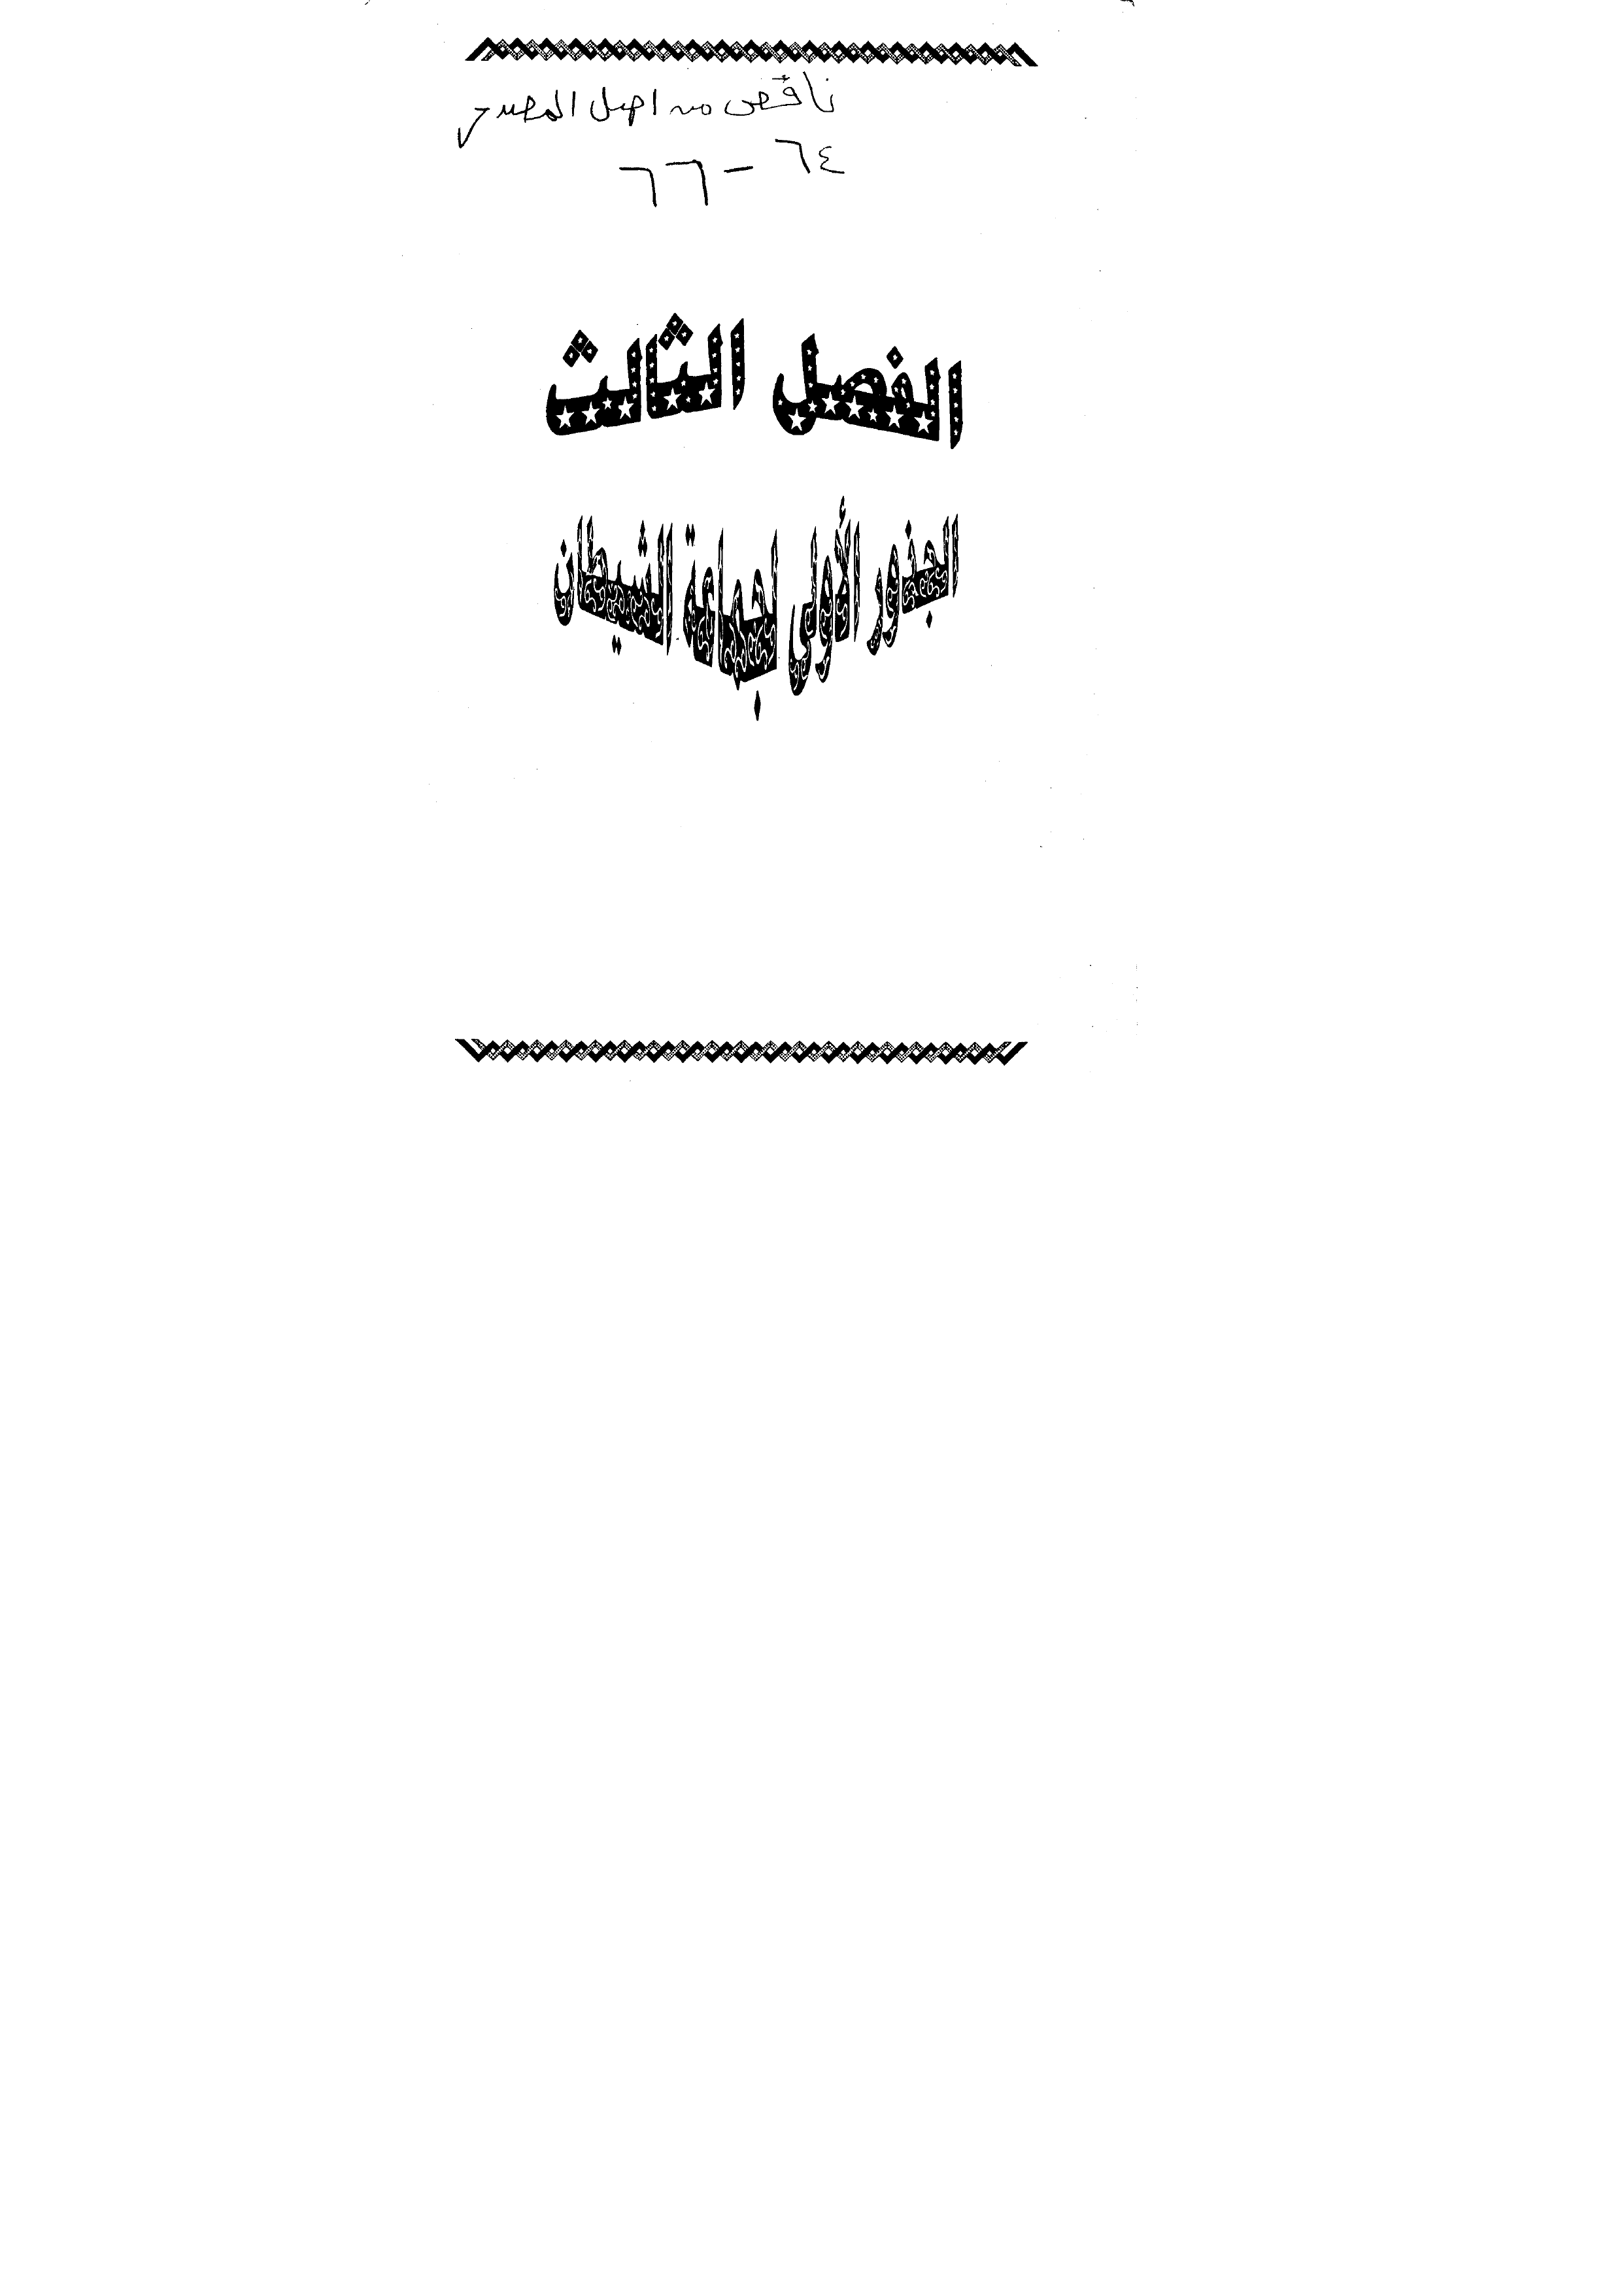 ناقص من اصل المصدر
٦٤ - ٦٦
الفصل الثالث
الجذور الأولى لجماعة الشيطان